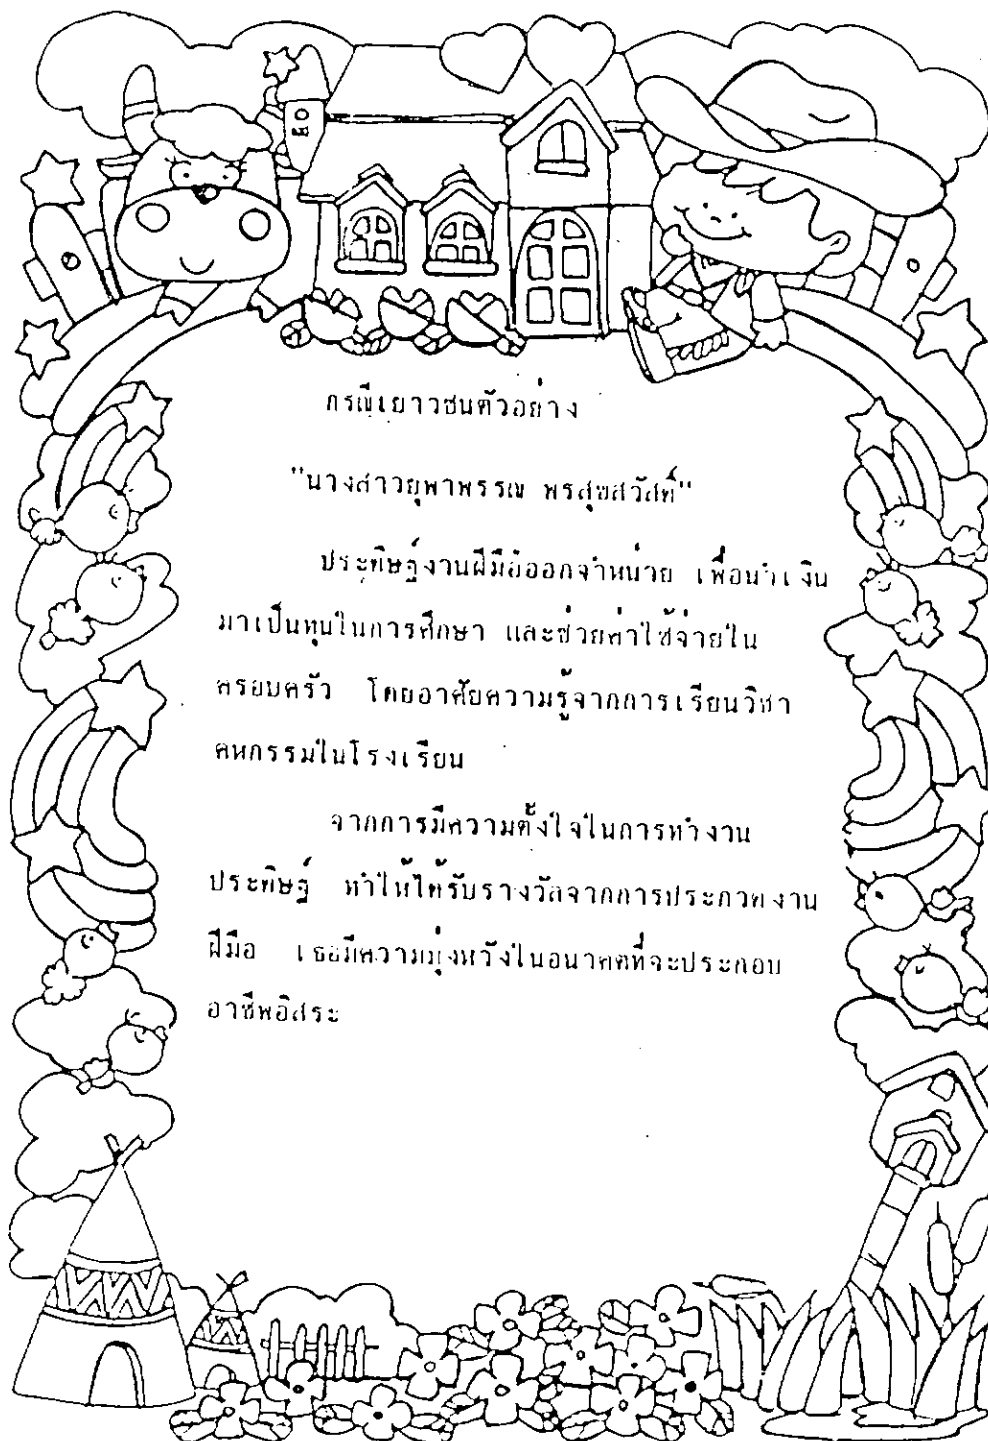 กรณีเยาวชนตัวอย่าง
"นางสาวยุพาพรรณ พรสุขสวัสดิ์"
ประดิษฐ์งานฝีมือออกจำหน่าย เพื่อนำเงิน
มาเป็นทุนในการศึกษา และช่วยค่าใช้จ่ายใน
ครอบครัว โดยอาศัยความรู้จากการเรียนวิชา
คหกรรมในโรงเรียน
จากการมีความตั้งใจในการทำงาน
ประดิษฐ์ ทำให้ได้รับรางวัลจากการประกวดงาน
ฝีมือ เธอมีความมุ่งหวังในอนาคตที่จะประกอบ
อาชีพอิสระ